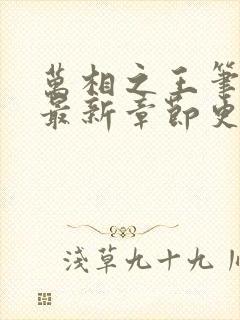 萬相之王筆
最新章節史
淺草九十九|